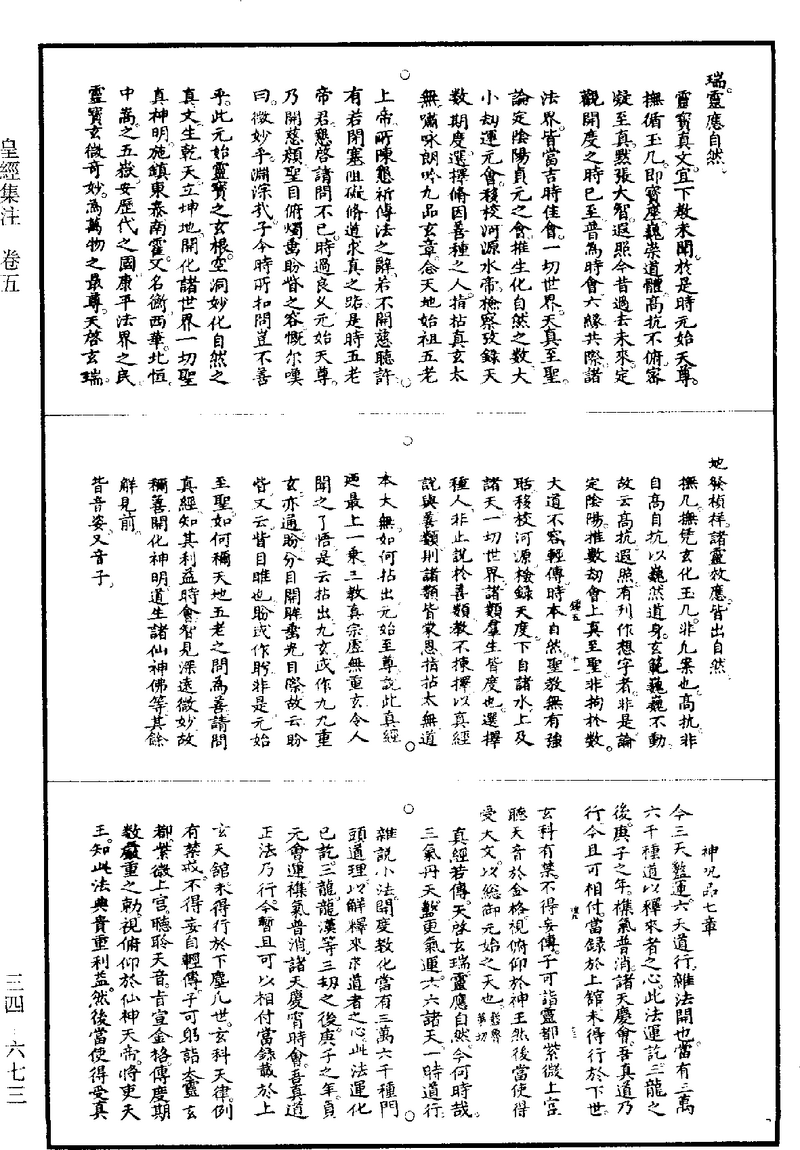 瑞。靈應自然。
靈寶真文。宜下教未聞。於是時元始天尊。
撫循玉几。即寶座。巍崇道體。高抗不俯。密
凝至真。默張大智。遐照今昔過去未來。定
觀開度之時已至。普為時會六緣共際。諸
法界。皆當吉時佳會。一切世界。天真至聖。
論定陰陽貞元之會。推生化自然之數。大
小劫運元會。移校河源水帝。檢察攷錄天
數期度。選擇備因善種之人。指拈真玄太
無。嘯咏朗吟九品玄章。合天地始祖五老
上帝。所陳懇祈傳法之辭。若不開慈聽許。
有若閉塞阻礙脩道求真之路。是時五老
帝君。懇啓諸問不已。時過良久。元始天尊。
乃開慈顏。聖目俯燭。垂盼眥之容。慨尔嘆
曰。微妙乎。淵深哉。子今時所扣問。豈不善
乎。此元始靈寶之玄根。空洞妙化自然之
真文。生乾天。立坤地。開化諸世界一切聖
真神明。施鎮東泰南霍。又名衡。西華。北恒。
中嵩。之五嶽。安歷代之國。康平法界之民。
靈寶玄微奇妙。為萬物之最尊。天啓玄瑞。
地發禎祥。諸靈效應。皆出自然。
撫几。撫凭玄化玉几。非几案也。高抗。非
自高自抗。以巍然道身。玄範巍巍不動。
故云高抗。遐照。有刊作想字者。非是。論
定陰陽。推數劫會。上真至聖。非拘於數。
大道不容輕傳。時本自然。聖教無有強
聒。移校河源。檢錄天度。下自諸水。上及
諸天。一切世界。諸類羣生。皆度也。選擇
種人。非止說於善類。教不揀擇。以真經
說與善類。則諸類皆蒙恩。指拈太無。道
本太無。如何拈出。元始至尊。說此真經。
廼最上一乘。三教真宗。虛無重玄。令人
聞之了悟。是云拈出九玄。或作九九重
玄。亦通。盼。分目開眸。垂光目際。故云盼
眥。又云。眥目睢也。盼或作眄。非是。元始
至聖。如何稱天地五老之問為善。請問
真經。知其利益時會。智見深遠微妙。故
稱善。開化神明。道生諸仙神佛等。其餘
解見前。
眥音姿。又音子。
神咒品七章
今三天盬運。六天道行。雜法開也。當有三萬
六千種道。以釋來者之心。此法運訖。三龍之
後。庚子之年。穢氣普消。諸天慶會。吾真道乃
行。今且可相付。當錄於上舘。未得行於下世。
玄科有禁。不得妄傳。子可詣靈都紫微上宮。
聽天音於金格。視俯仰於神王。然後當使得
受大文。以總御元始之天也。
真經若傳。天啓玄瑞。靈應自然。今何時哉。
三氣丹天。盬更氣運。六六諸天。一時道行。
雜說小法。開度教化。當有三萬六千種門
頭道理。以解釋來求道者之心。此法運化
已訖。三龍龍漢等三劫之後。庚子之年。貞
元會運。穢氣普消。諸天慶宵時會。吾真道
正法乃行。今暫且可以相付。當錄藏於上
玄天舘。未得行於下塵凡世。玄科天律。例
有禁戒。不得妄自輕傳。子可躬詣太靈玄
都。紫微上宮。聽聆天音。旨宣金格。傳慶期
數嚴重之勅。視俯仰於仙神天帝。將吏天
王。知此法典貴重利益。然後當使得受真
皇經集注　卷五
三四－六七三